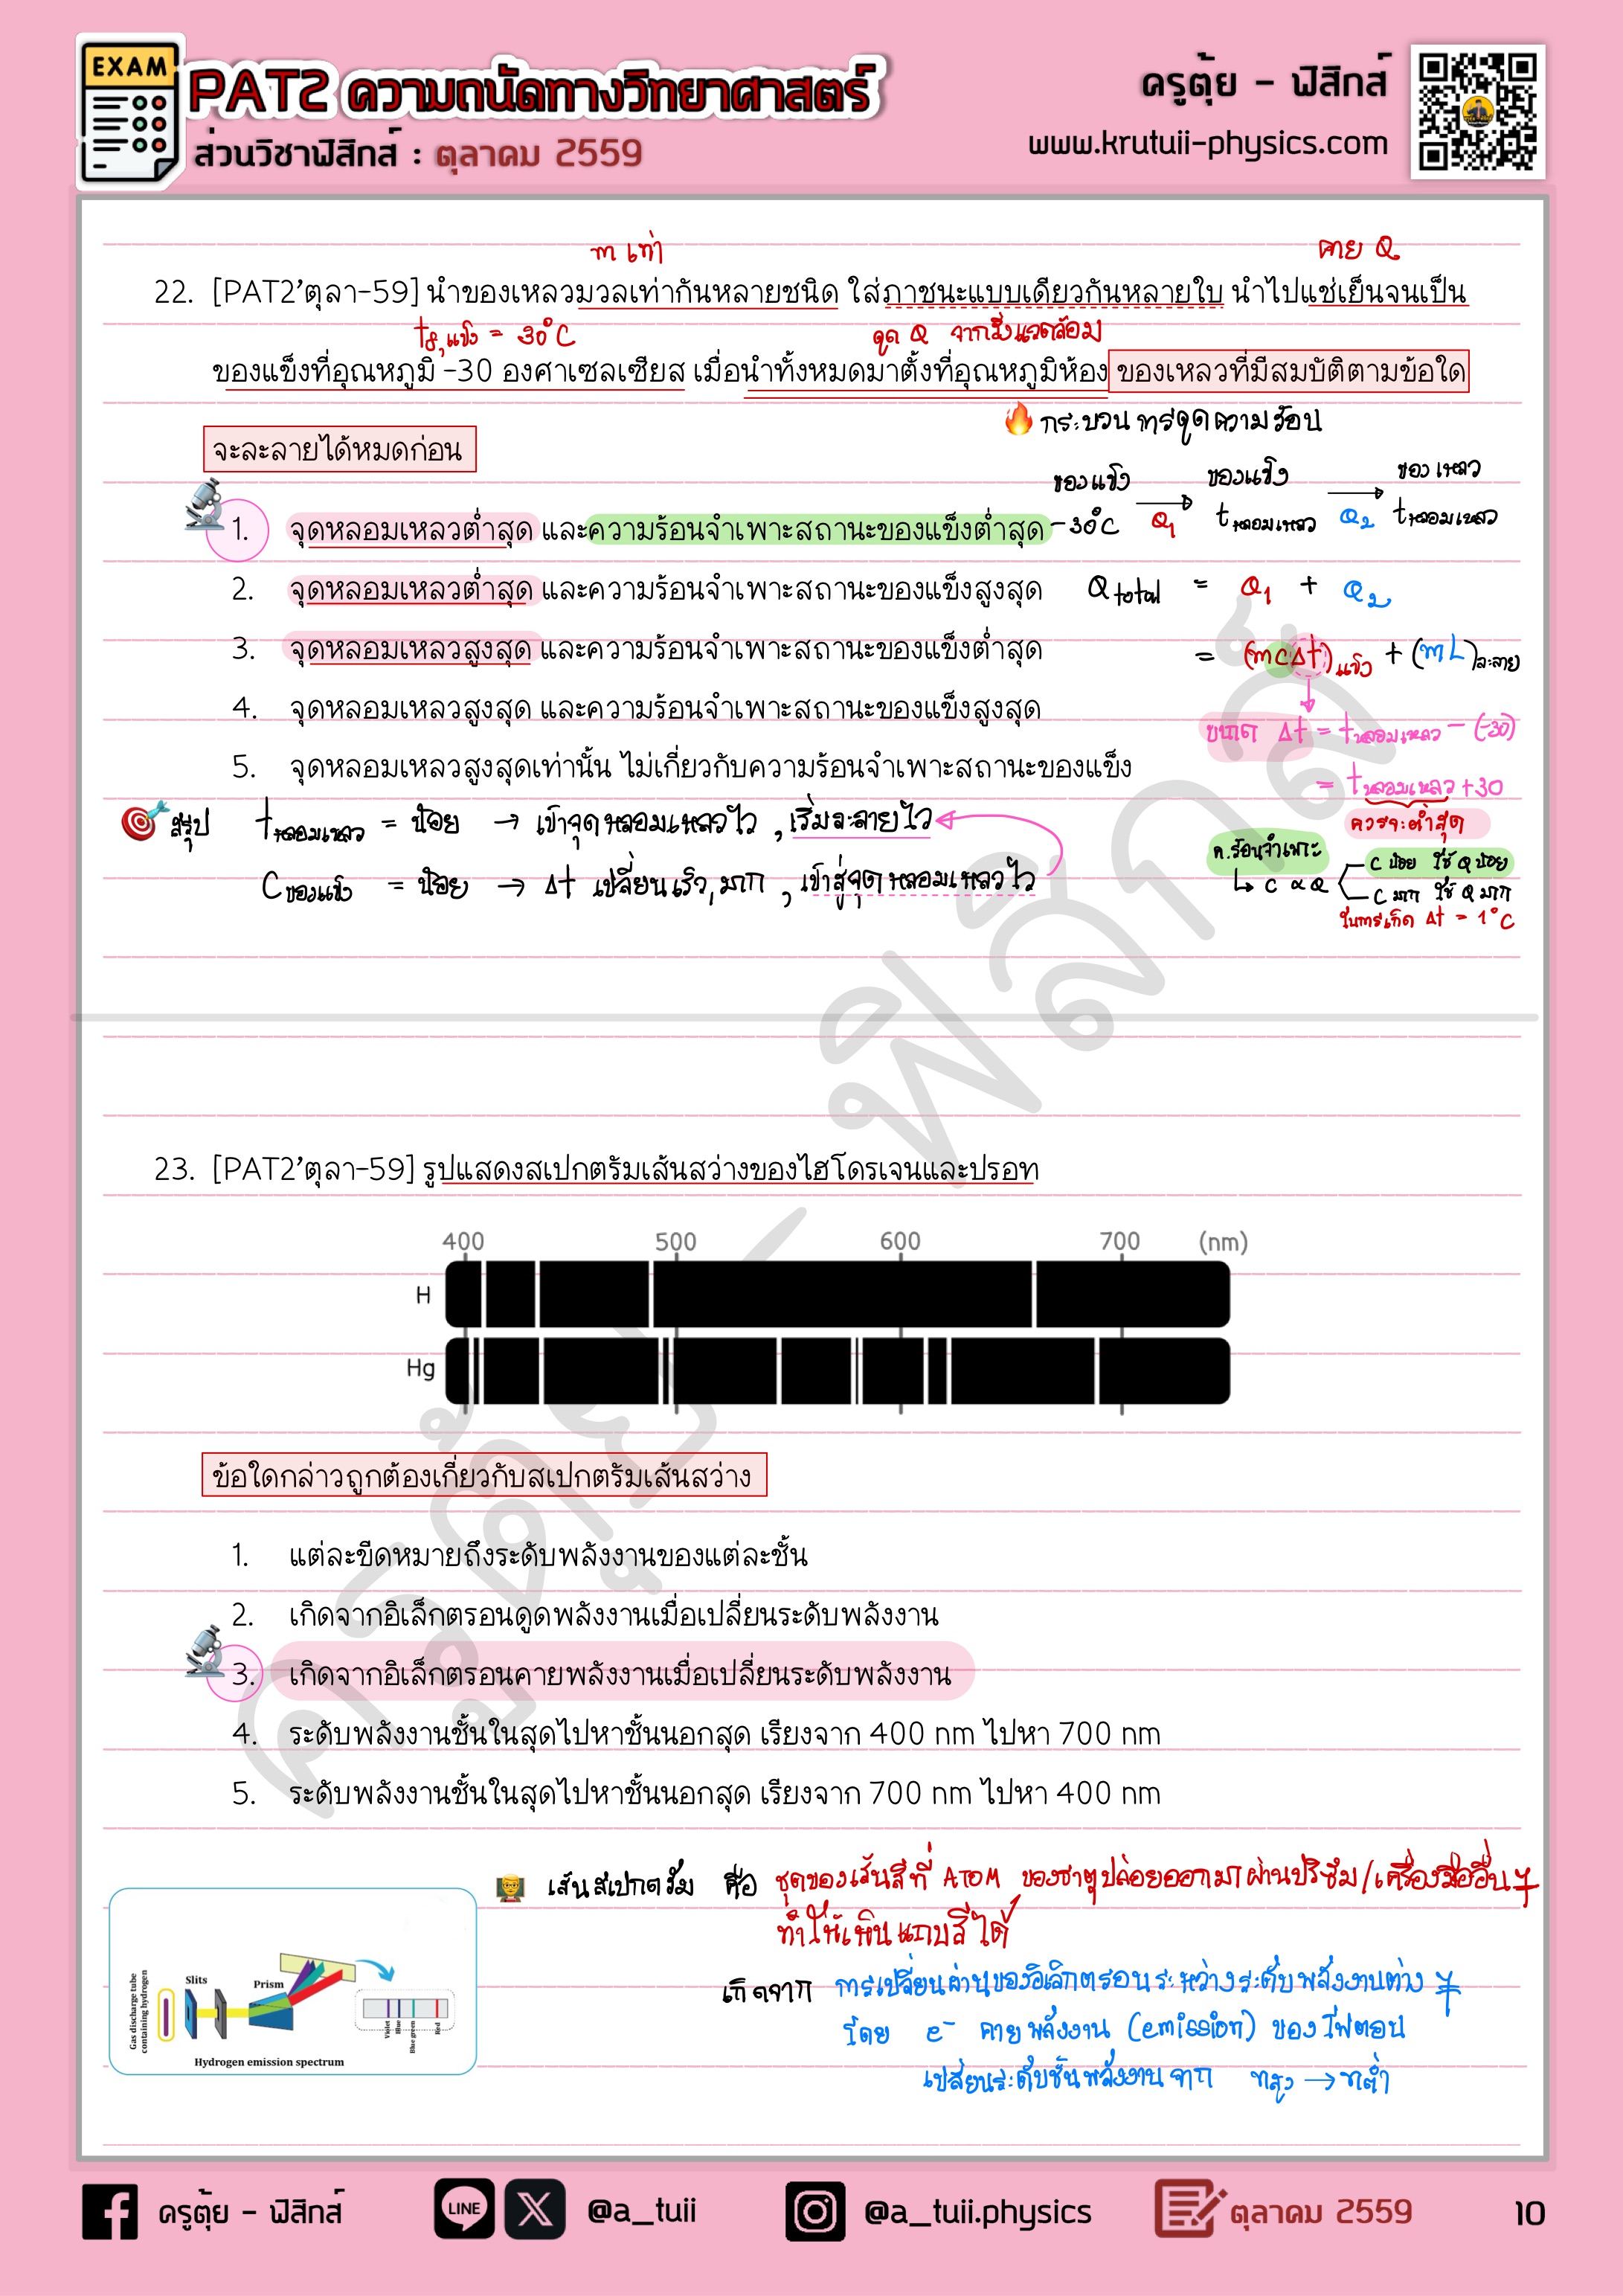 EXAM
PAT2 ความถนัดทางวิทยาศาสตร์
ส่วนวิชาฟิสิกส์ : ตุลาคม 2559
ครูตุ้ย - ฟิสิกส์
www.krutuii-physics.com
m เท่า
คาย Q
22. [PAT2'ตุลา-59] นำของเหลวมวลเท่ากันหลายชนิด ใส่ภาชนะแบบเดียวกันหลายใบ นำไปแช่เย็นจนเป็น
= 30°C
ดูด Q จากสิ่งแวดล้อม
ของแข็งที่อุณหภูมิ -30 องศาเซลเซียส เมื่อนำทั้งหมดมาตั้งที่อุณหภูมิห้อง ของเหลวที่มีสมบัติตามข้อใด
จะละลายได้หมดก่อน
กระบวนการดูดความร้อน
ของแข็ง ของแข็ง ของเหลว
-30°C Q1 tหลอมเหลว Q2 tหลอมเหลว
1. จุดหลอมเหลวต่ำสุด และความร้อนจำเพาะสถานะของแข็งต่ำสุด
2. จุดหลอมเหลวต่ำสุด และความร้อนจำเพาะสถานะของแข็งสูงสุด
Qtotal = Q1 + Q2
3. จุดหลอมเหลวสูงสุด และความร้อนจำเพาะสถานะของแข็งต่ำสุด
= (mcΔt)แข็ง + (mL)ละลาย
4. จุดหลอมเหลวสูงสุด และความร้อนจำเพาะสถานะของแข็งสูงสุด
ขนาด Δt = tหลอมเหลว - (-30)
5. จุดหลอมเหลวสูงสุดเท่านั้น ไม่เกี่ยวกับความร้อนจำเพาะสถานะของแข็ง
= tหลอมเหลว +30
ควรจะต่ำสุด
สรุป tหลอมเหลว = น้อย → เข้าจุดหลอมเหลวไว , เริ่มละลายไว
Cของแข็ง = น้อย → Δt เปลี่ยนเร็ว, มาก , เข้าสู่จุดหลอมเหลวไว
ค.ร้อนจำเพาะ
C ∝ Q
C น้อย ใช้ Q น้อย
C มาก ใช้ Q มาก
ในการเกิด Δt = 1°C
23. [PAT2'ตุลา-59] รูปแสดงสเปกตรัมเส้นสว่างของไฮโดรเจนและปรอท
400 500 600 700 (nm)
H
Hg
ข้อใดกล่าวถูกต้องเกี่ยวกับสเปกตรัมเส้นสว่าง
1. แต่ละขีดหมายถึงระดับพลังงานของแต่ละชั้น
2. เกิดจากอิเล็กตรอนดูดพลังงานเมื่อเปลี่ยนระดับพลังงาน
3. เกิดจากอิเล็กตรอนคายพลังงานเมื่อเปลี่ยนระดับพลังงาน
4. ระดับพลังงานชั้นในสุดไปหาชั้นนอกสุด เรียงจาก 400 nm ไปหา 700 nm
5. ระดับพลังงานชั้นในสุดไปหาชั้นนอกสุด เรียงจาก 700 nm ไปหา 400 nm
เส้นสเปกตรัม คือ ชุดของเส้นสีที่ ATOM ของธาตุปล่อยออกมาผ่านปริซึม/เครื่องมืออื่นๆ
ทำให้เห็นแถบสีได้
เกิดจาก การเปลี่ยนผ่านของอิเล็กตรอนระหว่างระดับพลังงานต่างๆ
โดย e⁻ คายพลังงาน (emission) ของโฟตอน
เปลี่ยนระดับชั้นพลังงานจาก nสูง → nต่ำ
Gas discharge tube
containing hydrogen
Slits
Prism
Violet
Blue
Blue green
Red
Hydrogen emission spectrum
ครูตุ้ย - ฟิสิกส์
ครูตุ้ย - ฟิสิกส์
LINE
X
@a_tuii
@a_tuii.physics
ตุลาคม 2559
10